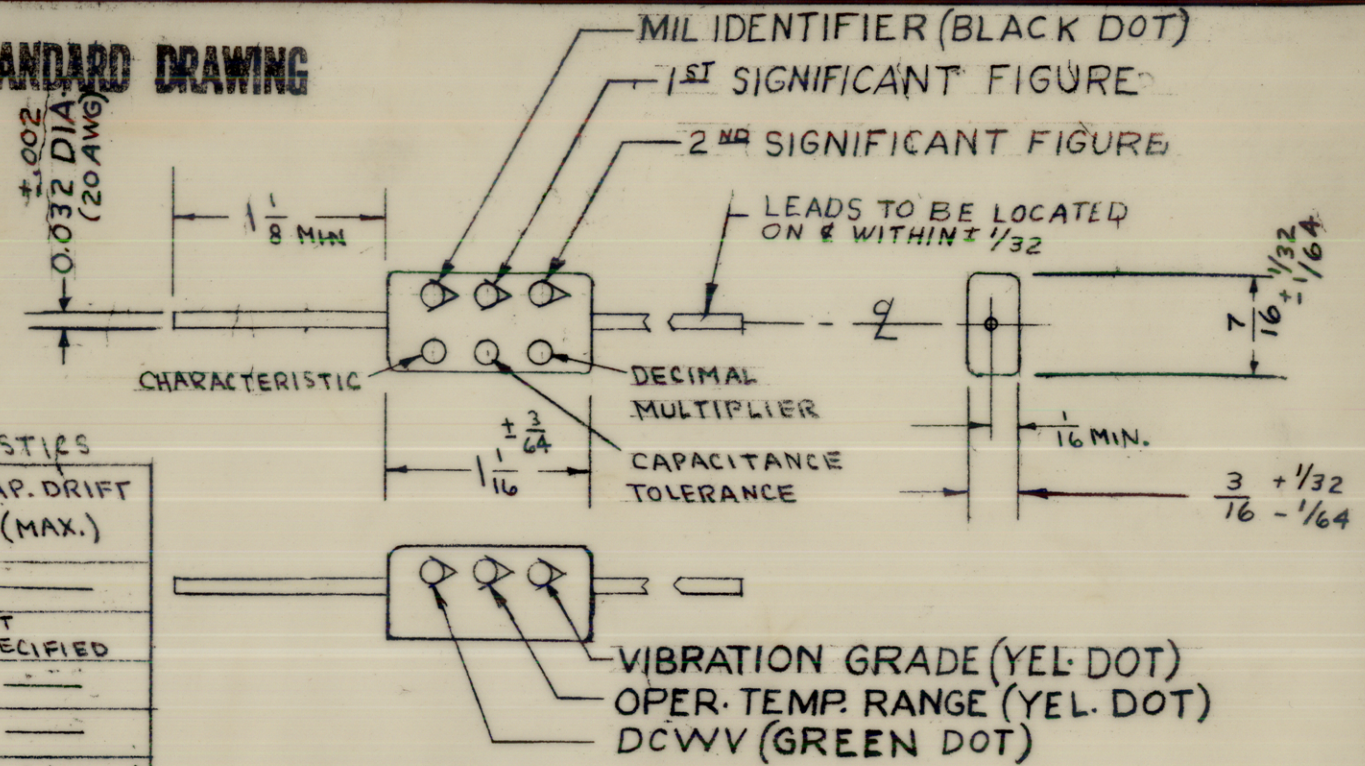 ANDARD DRAWING
MIL IDENTIFIER (BLACK DOT)
1ST SIGNIFICANT FIGURE
2ND SIGNIFICANT FIGURE
±.002
0.032 DIA.
(20 AWG)
1 1/8 MIN
LEADS TO BE LOCATED
ON ℄ WITHIN ± 1/32
℄
7/16 + 1/32 - 1/64
CHARACTERISTIC
DECIMAL
MULTIPLIER
1 1/16 ± 3/64
CAPACITANCE
TOLERANCE
1/16 MIN.
3/16 + 1/32 - 1/64
STICS
AP. DRIFT
(MAX.)
T
ECIFIED
VIBRATION GRADE (YEL. DOT)
OPER. TEMP. RANGE (YEL. DOT)
DCWV (GREEN DOT)